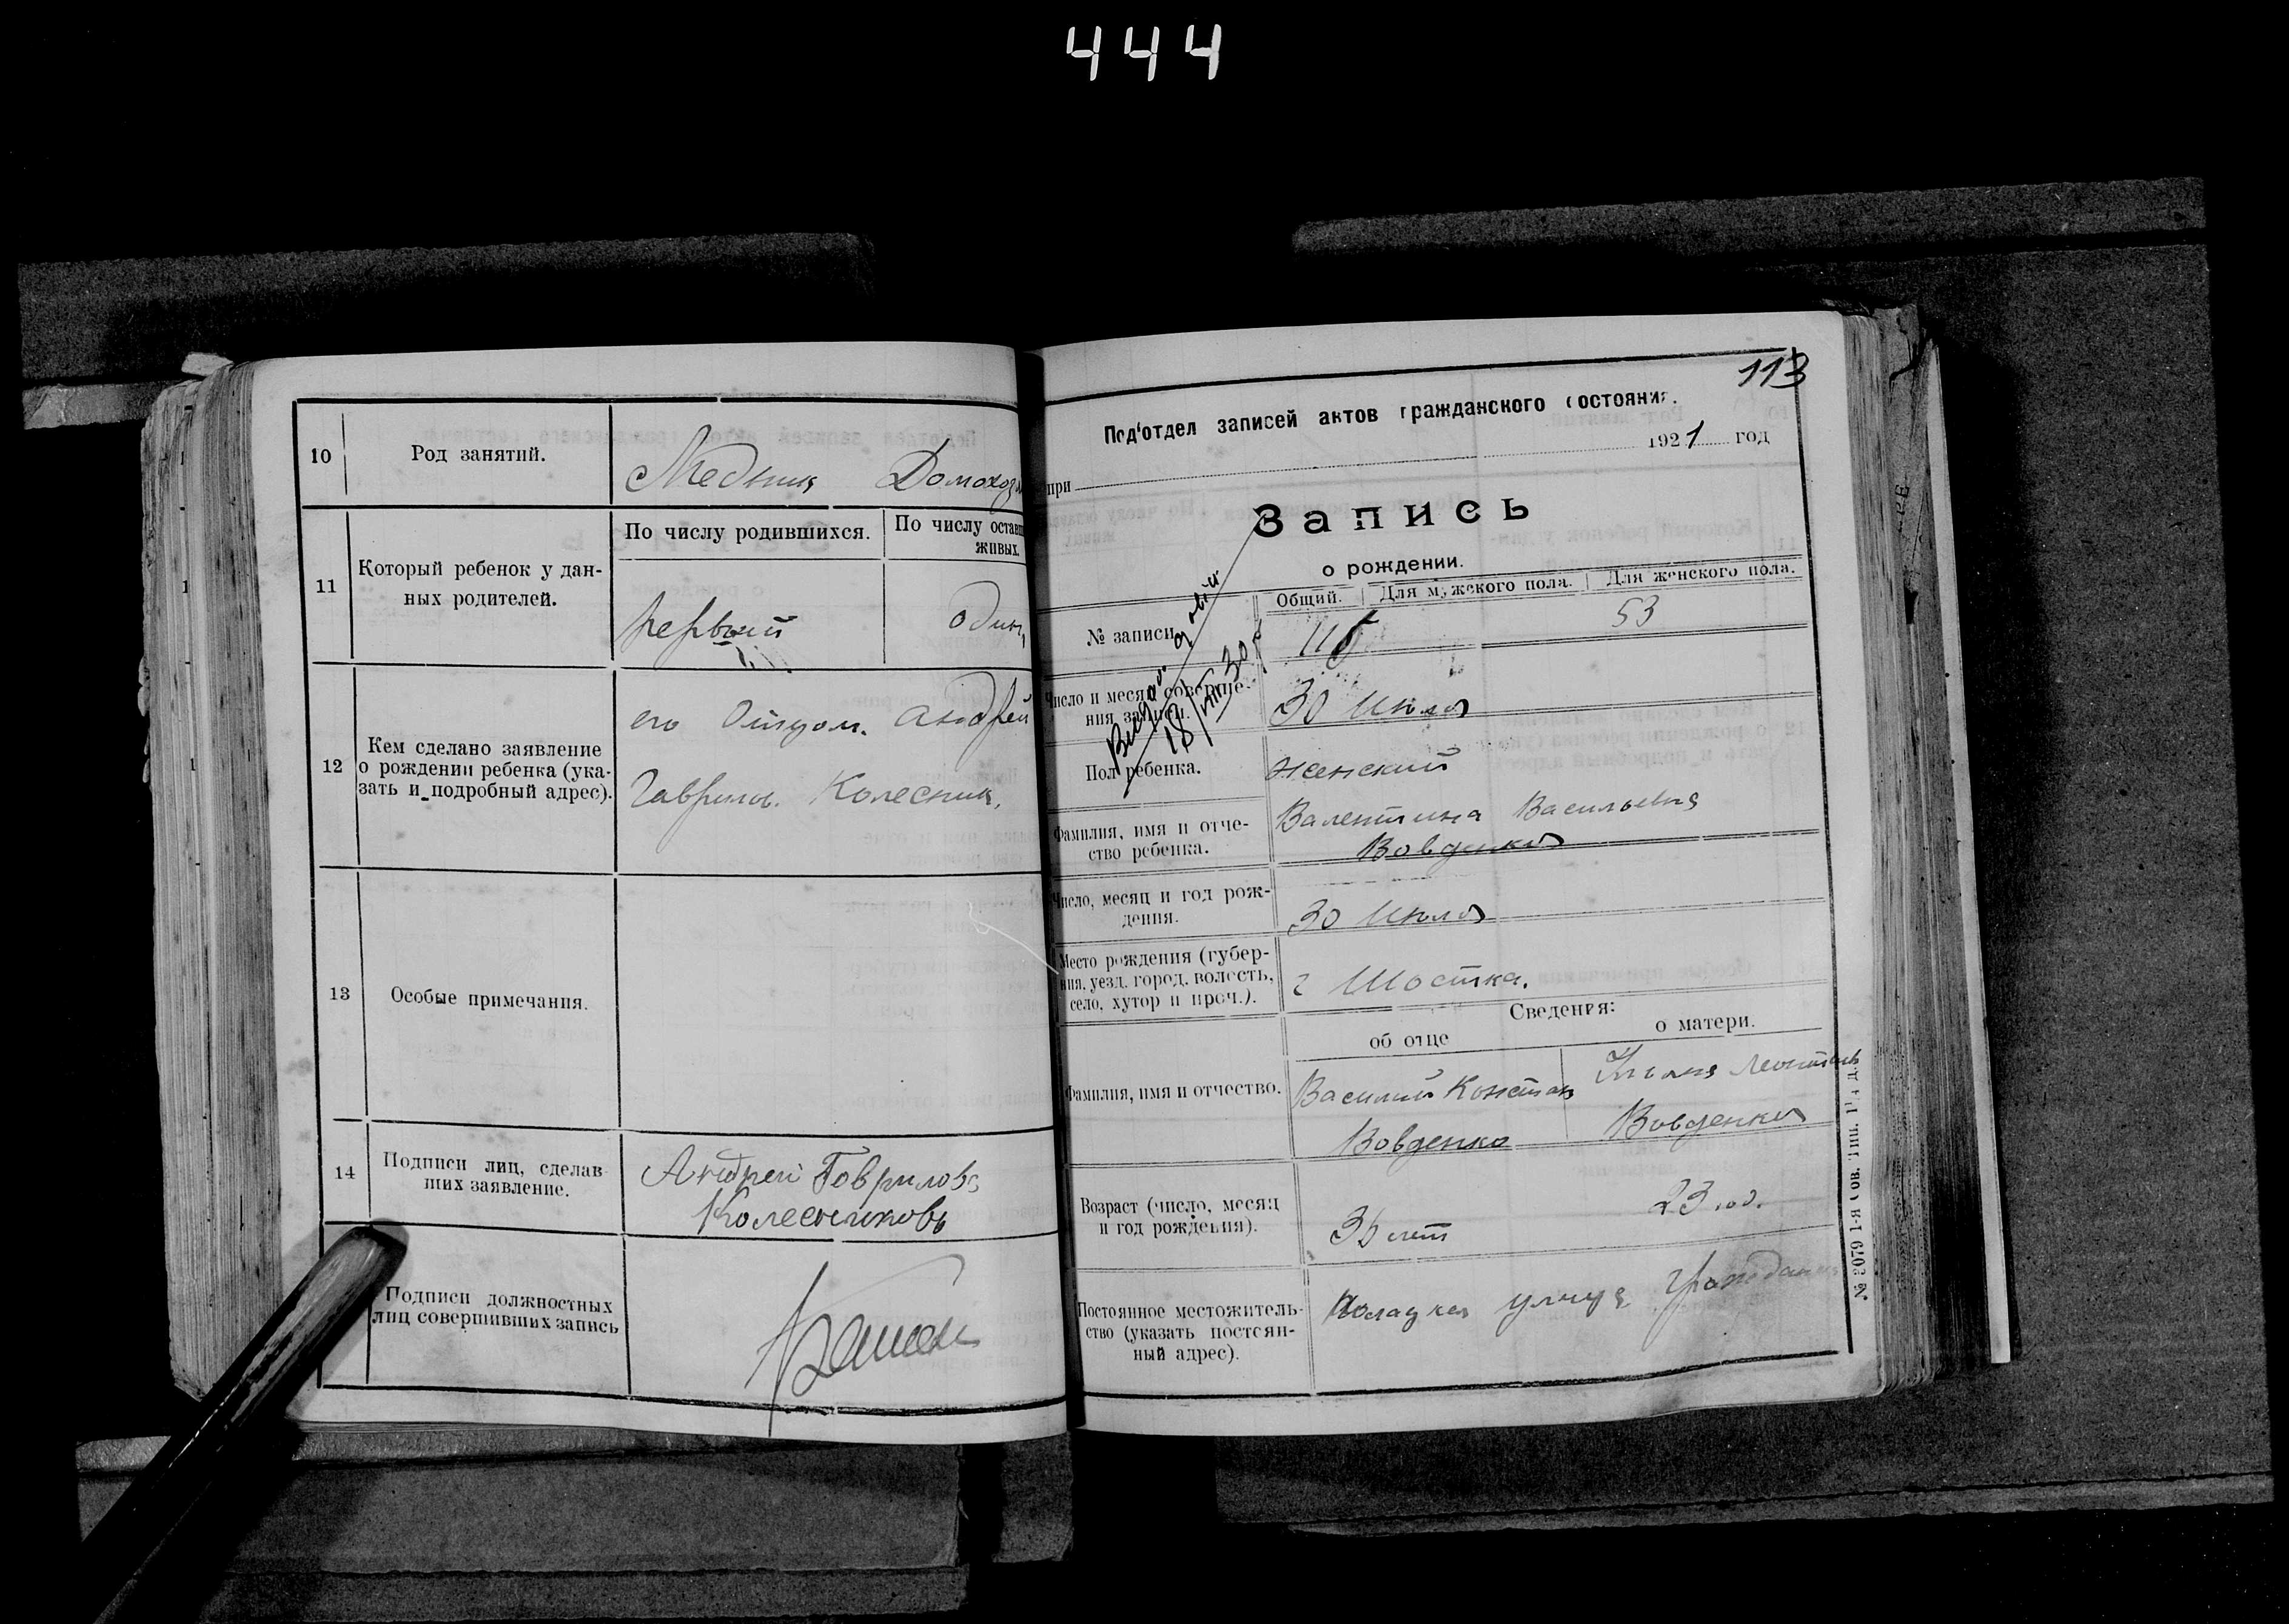 444
10
Род занятий.
Медник Домохоз
11
Который ребенок у дан-
ных родителей.
По числу родившихся.
По числу остав
живых.
первый
один
12
Кем сделано заявление
о рождении ребенка (ука-
зать и подробный адрес).
его Отцом. Андрей
Гаврилов. Колесник,
13
Особые примечания.
14
Подписи лиц, сделав
ших заявление.
Андрей Говриловъ
Колесниковъ
Подписи должностных
лиц совершивших запись
113
Под'отдел записей актов гражданского состояния.
1921 год
при
Запись
о рождении.
№ записи
Общий.
Для мужского пола.
Для женского пола.
53
Число и месяц соверше-
ния записи.
30 Июля
18/VII 30
Пол ребенка.
женский
Фамилия, имя и отче-
ство ребенка.
Валентина Васильевна
Вовденко
Число, месяц и год рож-
дения.
30 Июля
Место рождения (губер-
ния, уезд, город, волость,
село, хутор и проч.).
г Шостка.
Сведения:
об отце
о матери.
Фамилия, имя и отчество.
Василий Констан
Вовденко
Вовденко
Возраст (число, месяц
и год рождения).
лет
23 год.
Постоянное местожитель-
ство (указать постоян-
ный адрес).
улица
№ 3079 1-я Сов. Тип.